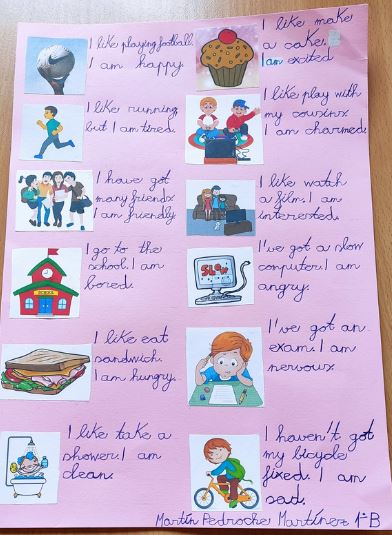 I like playing football.
I am happy.
I like make
a cake.
I am exited
I like running
but I am tired.
I like play with
my cousins
I am charmed.
I have got
many friends
I am friendly
I like watch
a film. I am
interested.
I go to the
school. I am
bored.
SCHOOL
I've got a slow
computer. I am
angry.
SLOW
I like eat
sandwich.
I am hungry.
I've got an
exam. I am
nervous
I like take a
shower. I am
clean.
I haven't got
my bicycle
fixed. I am
sad.
Martín Pedroche Martínez 1º B